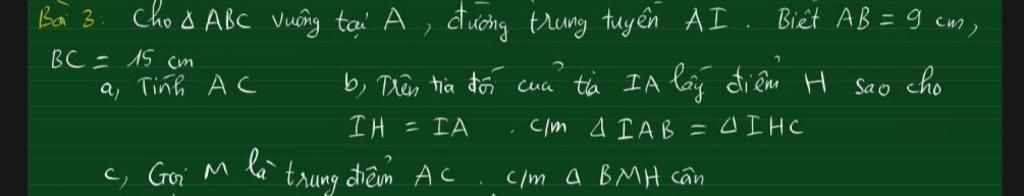 Bài 3: Cho Δ ABC vuông tại A, đường trung tuyến AI. Biết AB = 9 cm,
BC = 15 cm
a, Tính AC b, Trên tia đối của tia IA lấy điểm H sao cho
IH = IA. c/m Δ IAB = Δ IHC
c, Gọi M là trung điểm AC. c/m Δ BMH cân